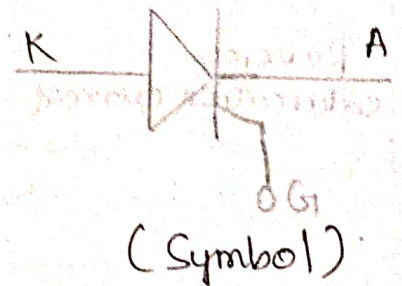 K A
G
(Symbol)